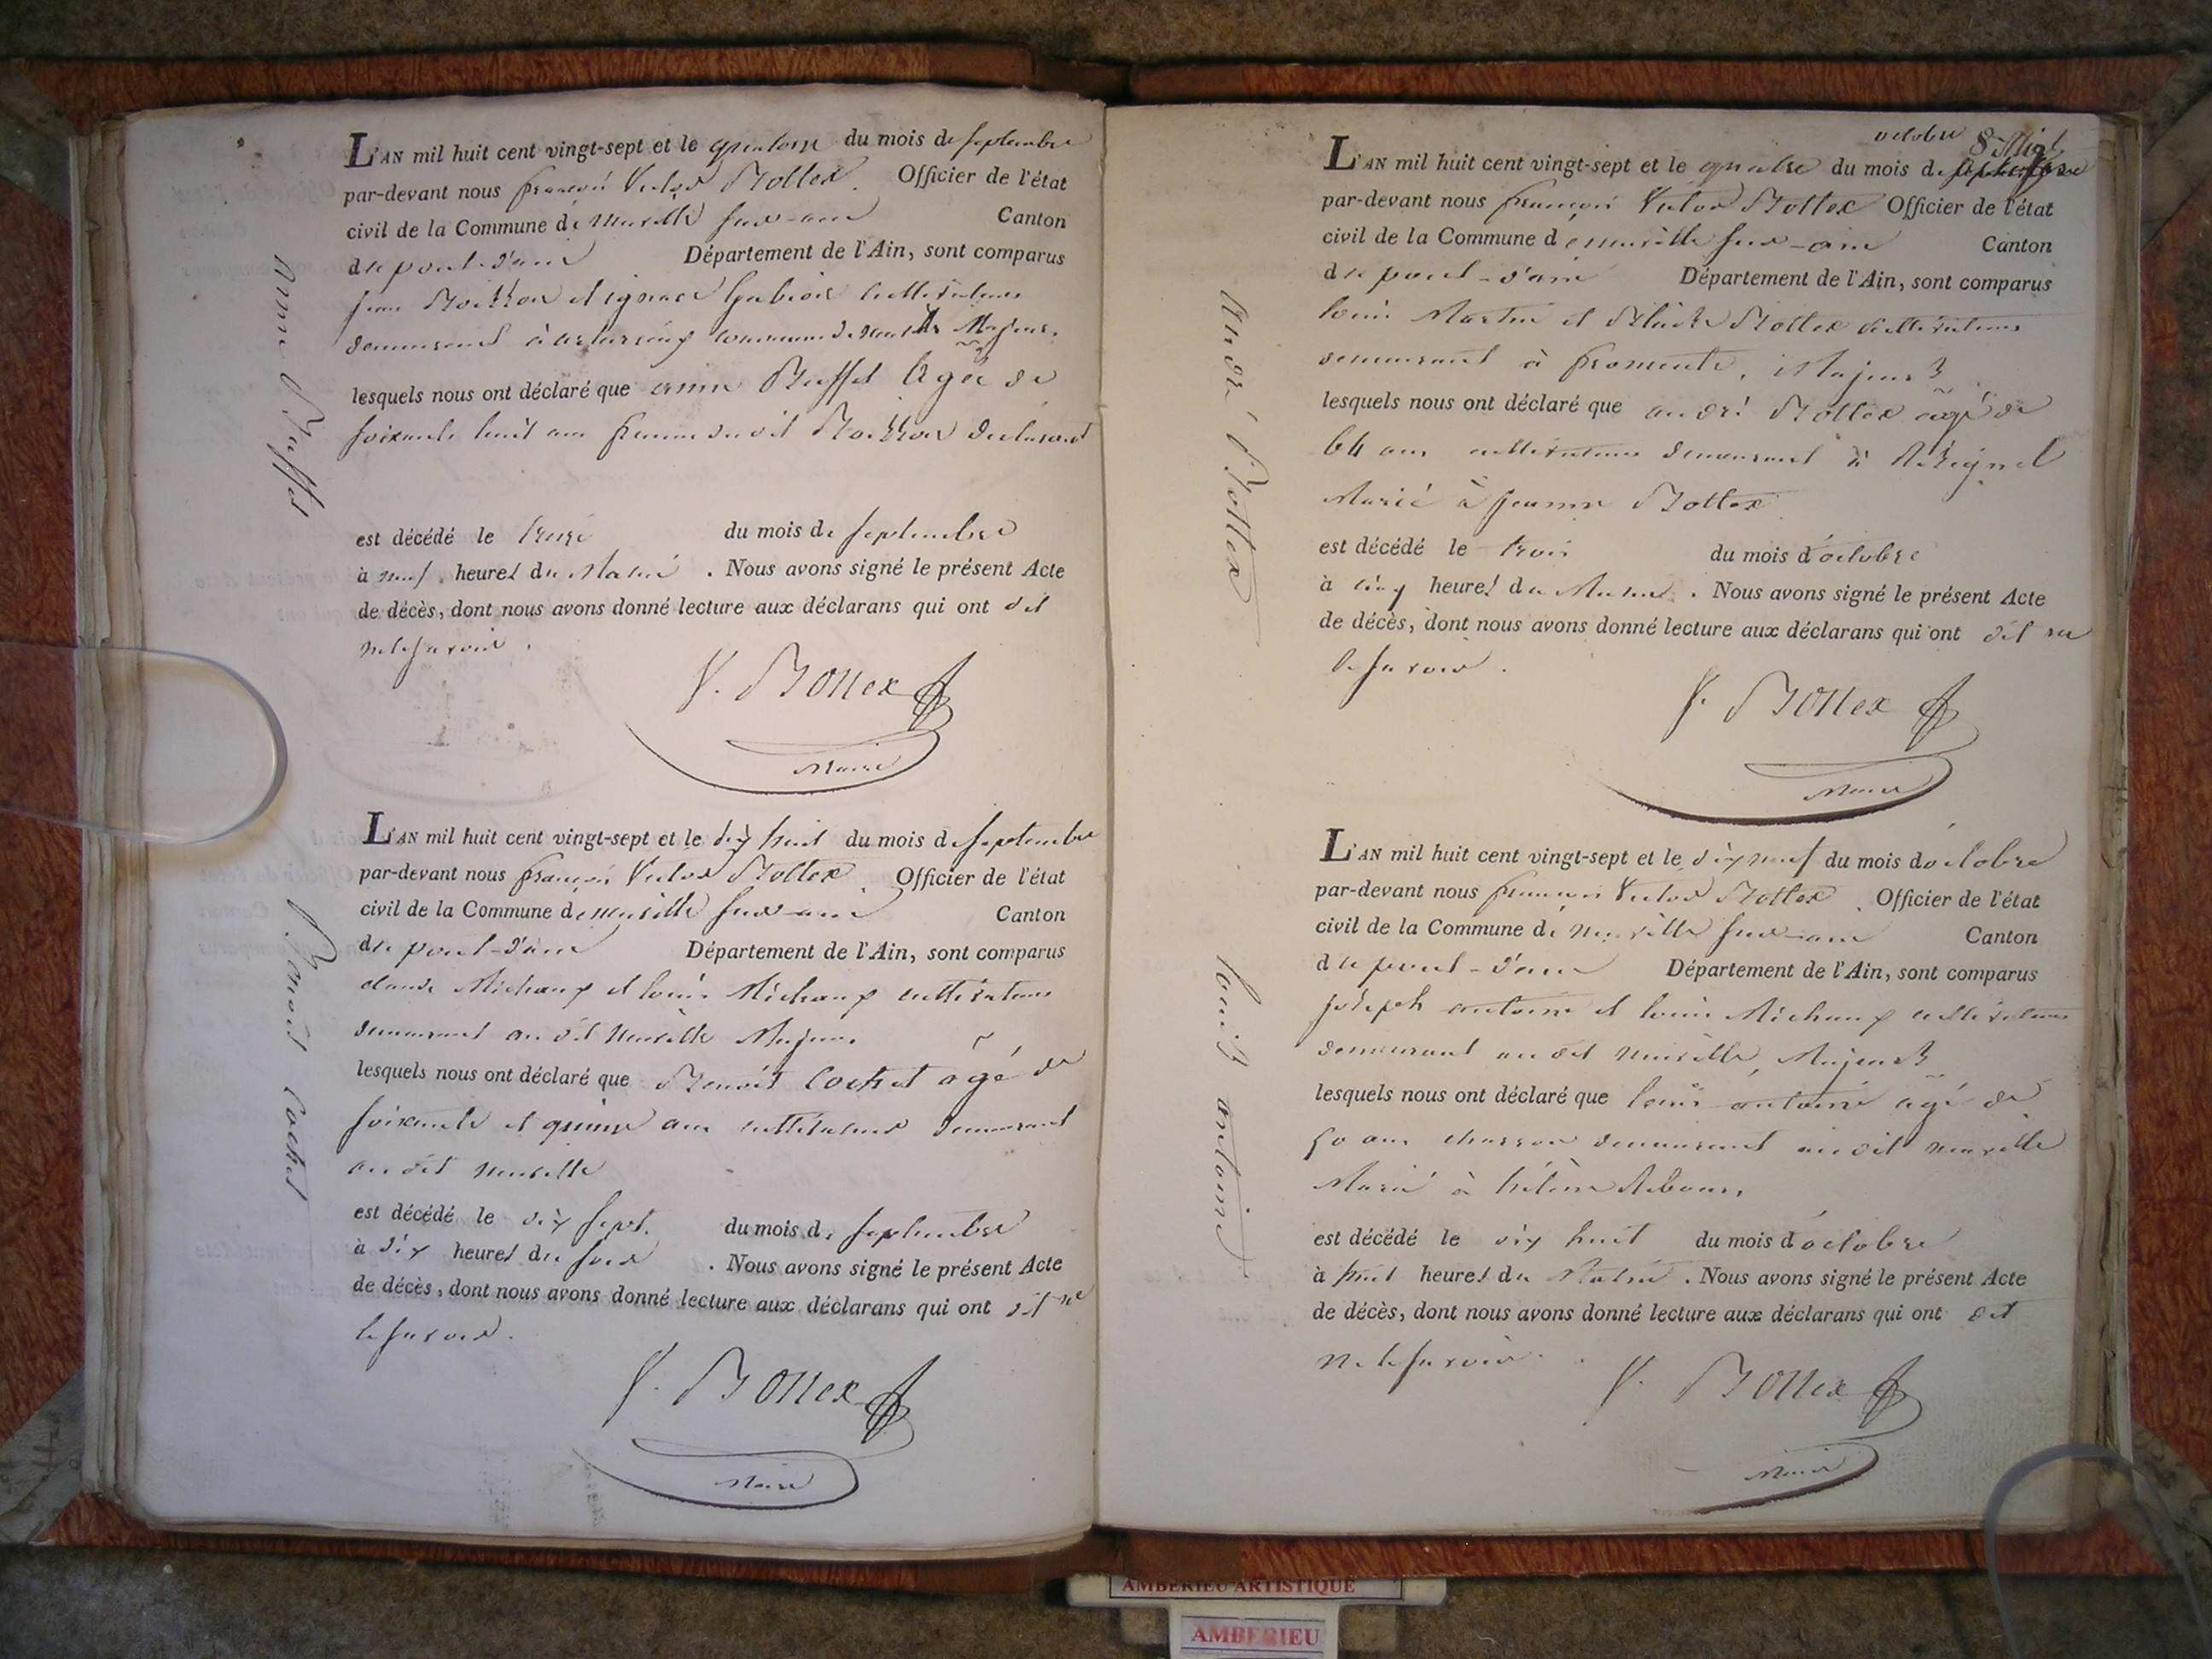 L'AN mil huit cent vingt-sept et le quatorze du mois de septembre
par-devant nous françois Victor Bottex. Officier de l'état
civil de la Commune de neuville sur-ain Canton
de pont-d'ain Département de l'Ain, sont comparus
et ignace cultivateurs
demeurant à commune de Majeurs.
lesquels nous ont déclaré que anne Buffet âgée de
soixante huit ans femme du dit déclarant
est décédé le treize du mois de septembre
à neuf heures du Matin. Nous avons signé le présent Acte
de décès, dont nous avons donné lecture aux déclarans qui ont dit
ne le savoir.
V. Bottex
Maire
anne Buffet
L'AN mil huit cent vingt-sept et le dix huit du mois de septembre
par-devant nous françois Victor Bottex. Officier de l'état
civil de la Commune de neuville sur-ain Canton
de pont-d'ain Département de l'Ain, sont comparus
claude Michaux et louis Michaux cultivateurs
demeurant au dit neuville Majeurs
lesquels nous ont déclaré que Benoit Cochet âgé de
soixante et quinze ans cultivateur demeurant
au dit neuville
est décédé le dix sept. du mois de septembre
à dix heures du soir. Nous avons signé le présent Acte
de décès, dont nous avons donné lecture aux déclarans qui ont dit ne
le savoir.
V. Bottex
Maire
Benoit Cochet
octobre
L'AN mil huit cent vingt-sept et le quatre du mois de septembre
par-devant nous françois Victor Bottex Officier de l'état
civil de la Commune de neuville sur-ain Canton
de pont-d'ain Département de l'Ain, sont comparus
louis Martin et Bottex cultivateurs
demeurant à fromente, Majeurs
lesquels nous ont déclaré que andré Bottex âgé de
64 ans cultivateur demeurant à
Marié à jeanne Bottex
est décédé le trois du mois d'octobre
à cinq heures du Matin. Nous avons signé le présent Acte
de décès, dont nous avons donné lecture aux déclarans qui ont dit ne
le savoir.
V. Bottex
Maire
André Bottex
L'AN mil huit cent vingt-sept et le dix neuf du mois d'octobre
par-devant nous françois Victor Bottex. Officier de l'état
civil de la Commune de neuville sur-ain Canton
de pont-d'ain Département de l'Ain, sont comparus
joseph antoine et louis Michaux cultivateurs
demeurant au dit neuville, Majeurs
lesquels nous ont déclaré que louis antoine âgé de
50 ans charron demeurant au dit neuville
Marié à hélène
est décédé le dix huit du mois d'octobre
à huit heures du Matin. Nous avons signé le présent Acte
de décès, dont nous avons donné lecture aux déclarans qui ont dit
ne le savoir.
V. Bottex
Maire
louis antoine
AMBERIEU ARTISTIQUE
AMBERIEU